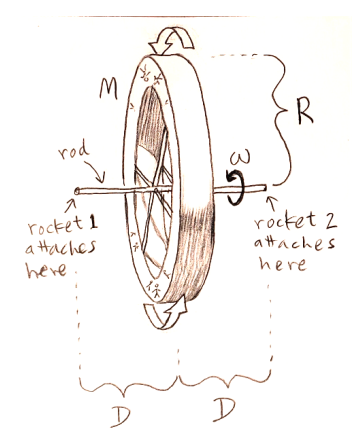 M
R
rod
ω
rocket 1
attaches
here
rocket 2
attaches
here
D
D